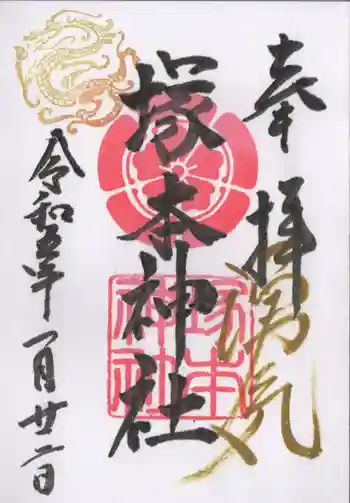 奉拝
勇気
塚本神社
塚本
神社
令和五年一月廿二日